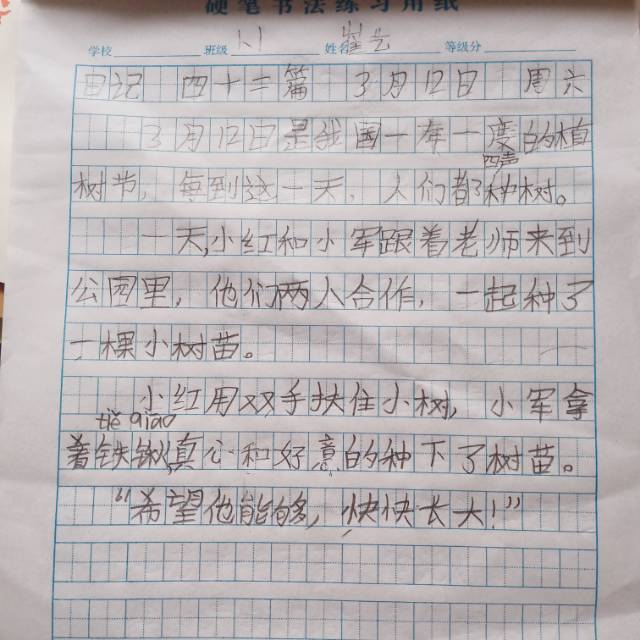 硬笔书法练习用纸
学校 班级 1、1 姓名 等级分
日记 四十二篇 3月12日 周六
3月12日是我国一年一度的植
树节，每到这一天，人们都种树。
一天,小红和小军跟着老师来到
公园里，他们两人合作，一起种了
一棵小树苗。
小红用双手扶住小树，小军拿
tiě qiāo
着铁锹真心和好意的种下了树苗。
“希望他能够，快快长大！”